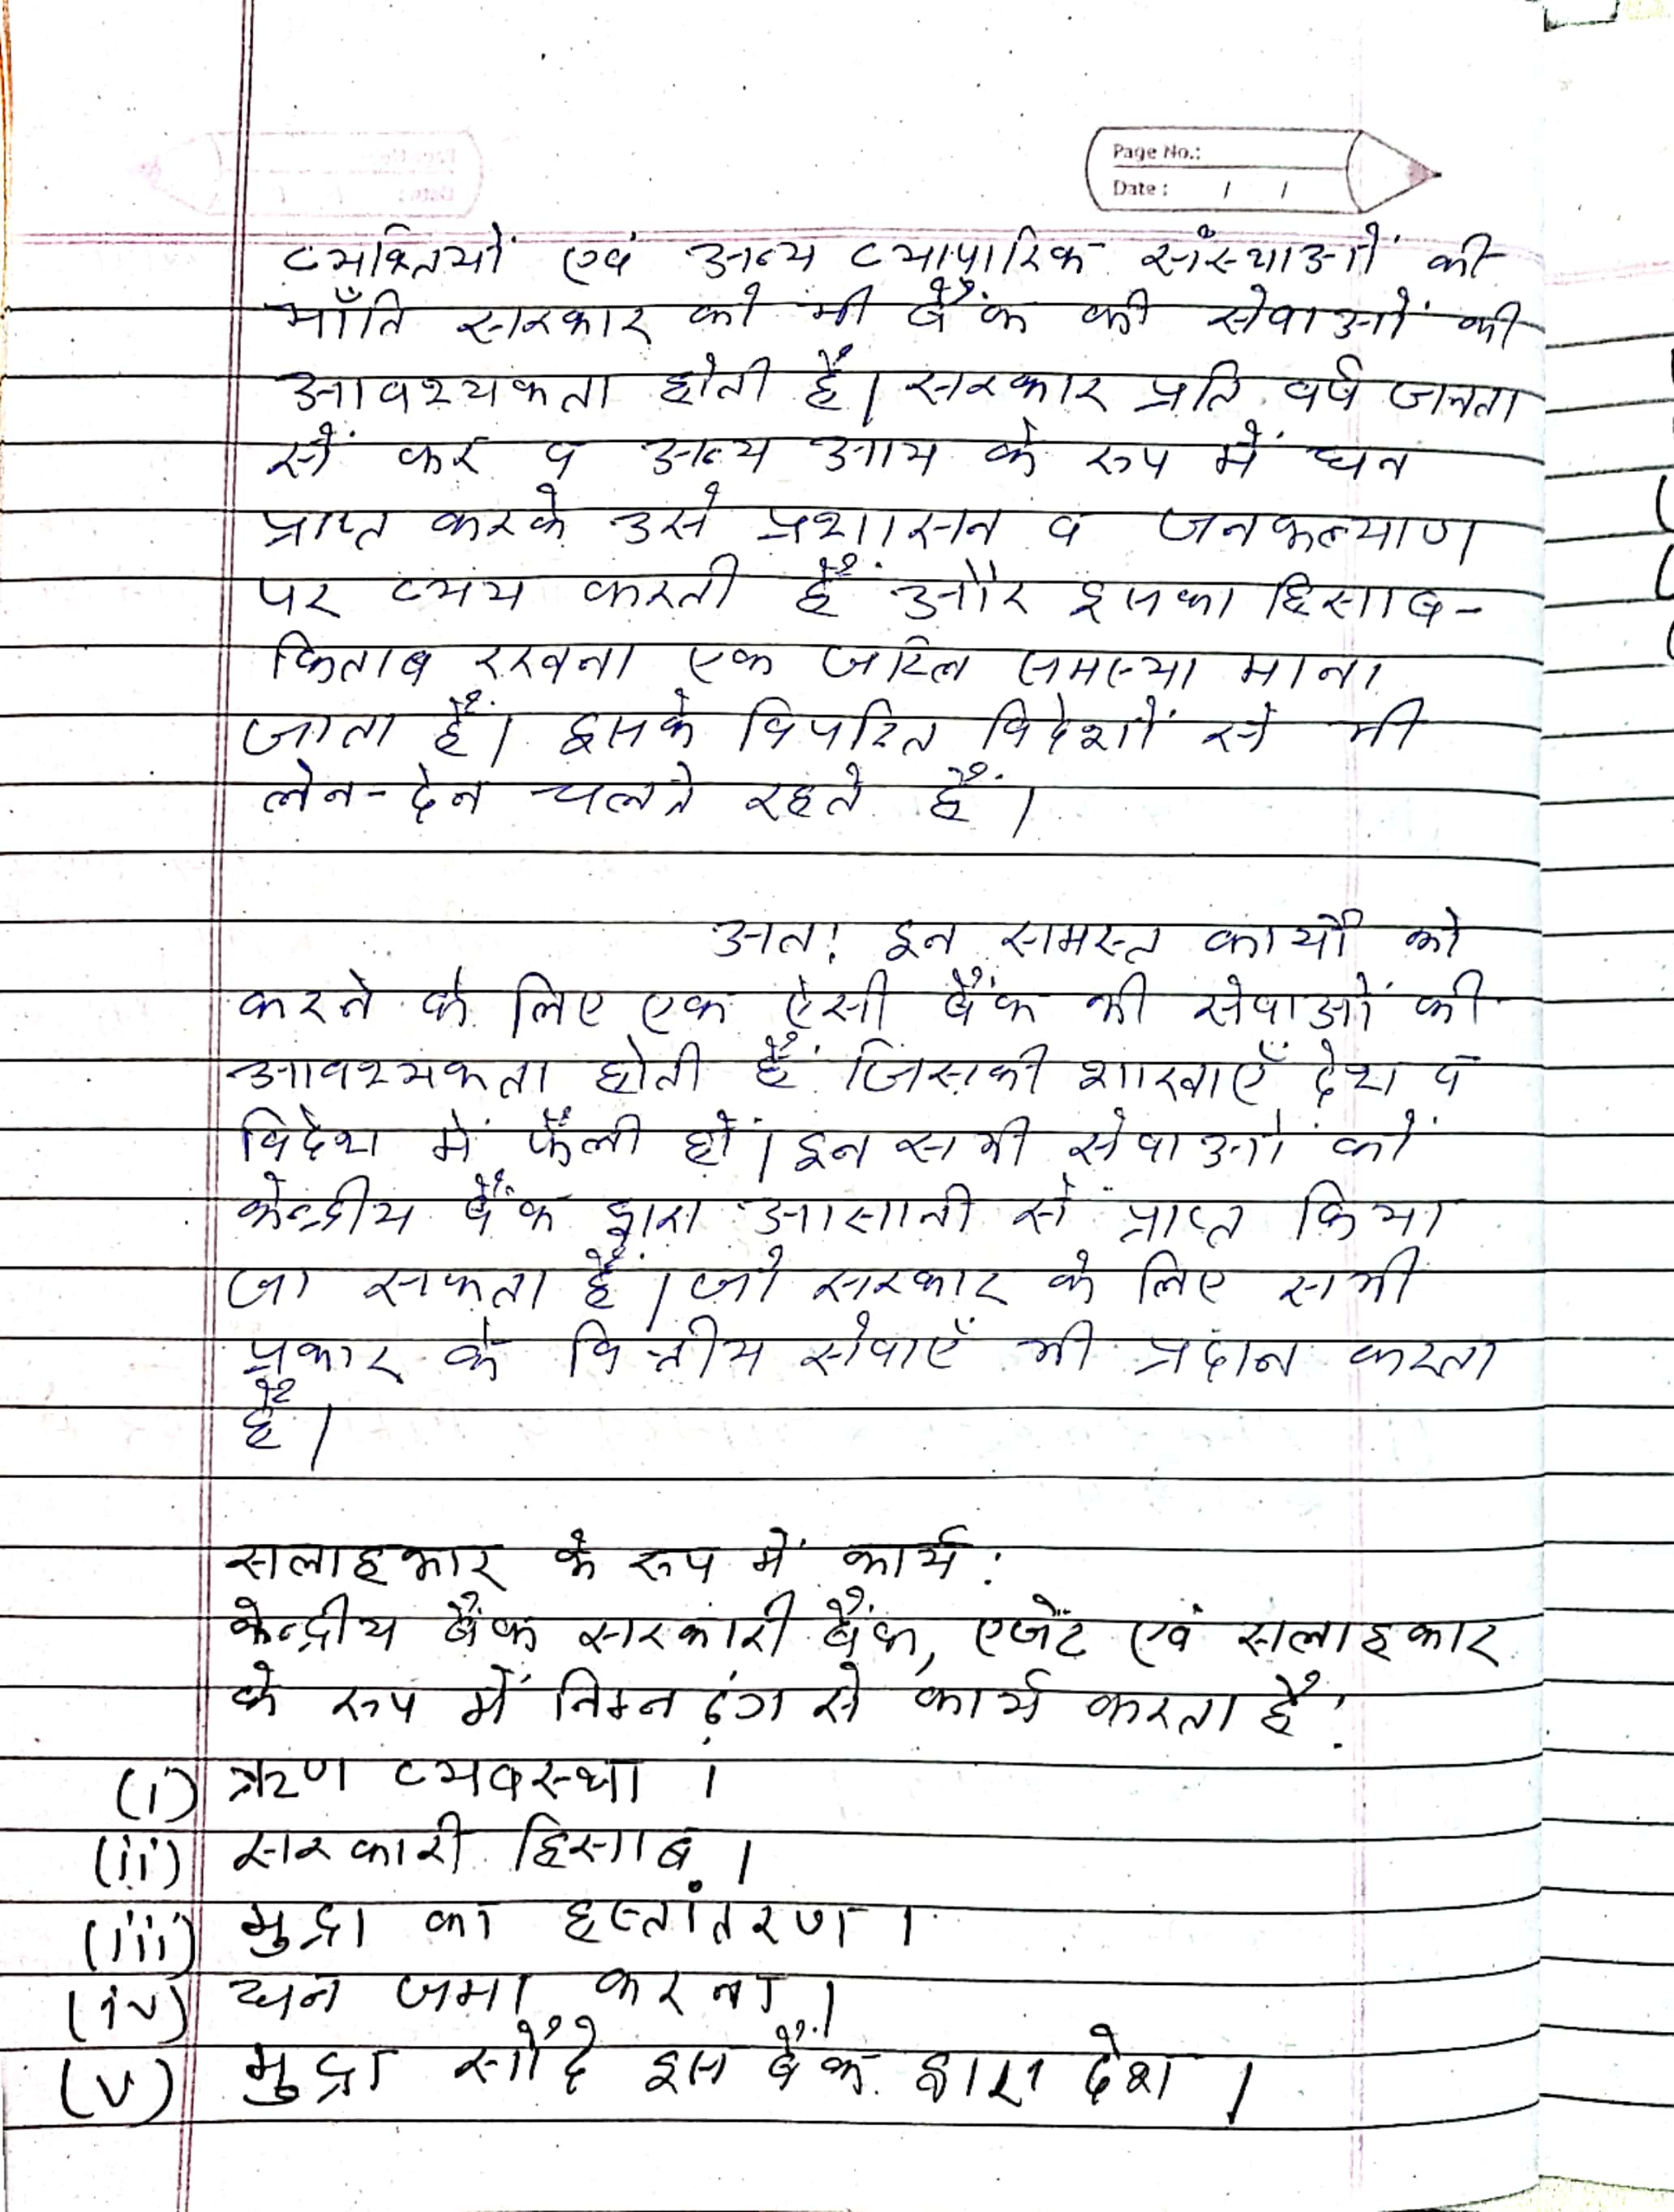 Page No.:
Date : / /
व्यक्तियों एवं अन्य व्यापारिक संस्थाओं की
भाँति सरकार को भी बैंक की सेवाओं की
आवश्यकता होती है। सरकार प्रति वर्ष जनता
से कर व अन्य आय के रूप में धन
प्राप्त करके उसे प्रशासन व जनकल्याण
पर व्यय करती हैं और इसका हिसाब-
किताब रखना एक जटिल समस्या माना
जाता हैं। इसके विपरित विदेशों से भी
लेन-देन चलते रहते हैं।
अत: इन समस्त कार्यों को
करने के लिए एक ऐसी बैंक की सेवाओं की
आवश्यकता होती हैं जिसकी शाखाएँ देश व
विदेश में फैली हों। इन सभी सेवाओं को
केन्द्रीय बैंक द्वारा आसानी से प्राप्त किया
जा सकता हैं। जो सरकार के लिए सभी
प्रकार के वित्तीय सेवाएँ भी प्रदान करता
है।
सलाहकार के रूप में कार्य :
केन्द्रीय बैंक सरकारी बैंक, एजेंट एवं सलाहकार
के रूप में निम्न ढंग से कार्य करता है :
(i) ऋण व्यवस्था ।
(ii) सरकारी हिसाब ।
(iii) मुद्रा का हस्तांतरण ।
(iv) धन जमा करना ।
(v) मुद्रा सौदे इस बैंक द्वारा देश ।